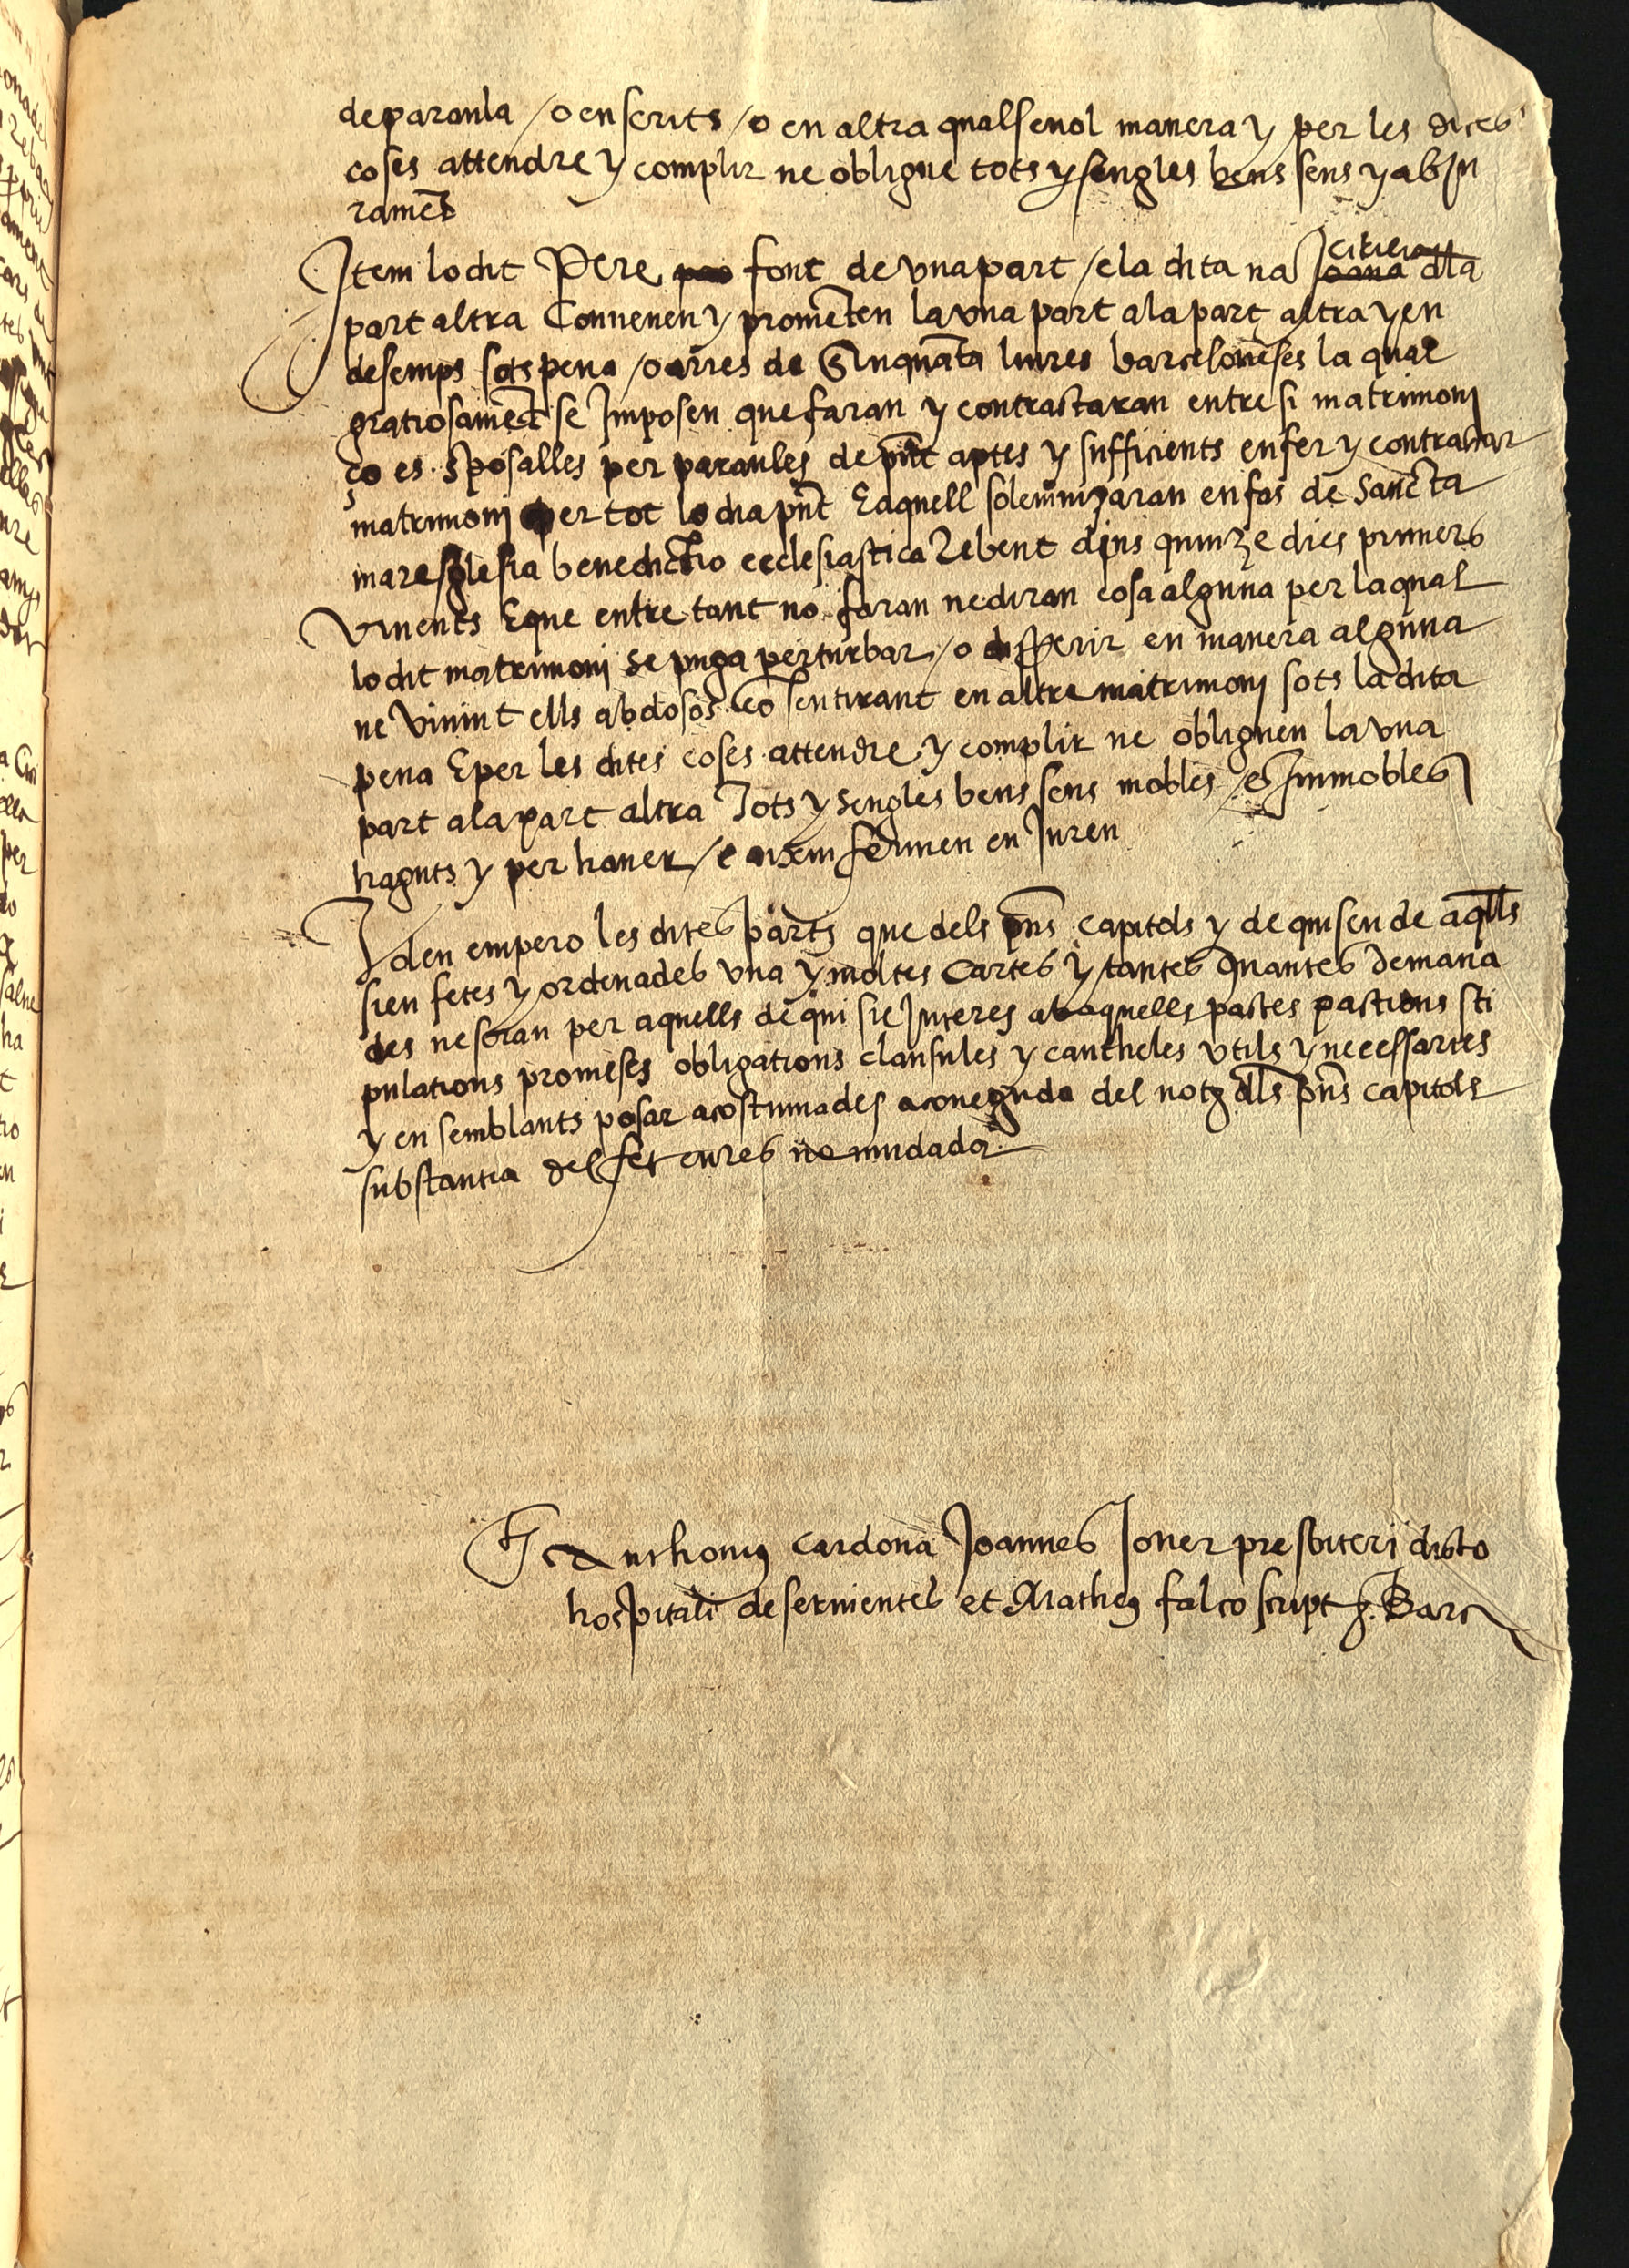 de paraula / o en scrits / o en altra qualsevol manera y per les dites
coses attendre y complir ne obligue tots y sengles bens sens y ab ju
rament
Item lo dit Pere font de una part / e la dita na dla
part altra Convenen y prometen la una part a la part altra y en
desemps sots pena / o arres de Sinquanta liures barceloneses la qual
gratiosament se Imposen que faran y contractaran entre si matrimoni
ço es sposalles per paraules de pnt aptes y sufficients en fer y contractar
matrimoni per tot lo dia pnt E aquell solemnizaran en fas de Sancta
mare sglesia benedictio ecclesiastica Rebent dins quinze dies primers
vinents E que entre tant no faran ne diran cosa alguna per la qual
lo dit matrimoni se puga perturbar / o differir en manera alguna
ne vinint ells abdosos co sentirant en altre matrimoni sots la dita
pena E per les dites coses attendre y complir ne obliguen la una
part a la part altra Tots y sengles bens sens mobles / e Immobles
haguts y per haver / e axi u fermen en Juren
Volen empero les dites parts que dels pns capitols y de quiscu de aqlls
sien fetes y ordenades una y moltes Cartes y tantes quantes demana
des ne seran per aquells de qui sie Interes ab aquells pactes pactions sti
pulations promeses obligations clausules y cautheles utils y necessaries
y en semblants posar acostumades a coneguda del not dls pns capitols
substantia del fet en res no mudador
Ts Anthonius Cardona Joannes Joner presbiteri dicto
hospitali deservientes et Matheus falco script h. Barc